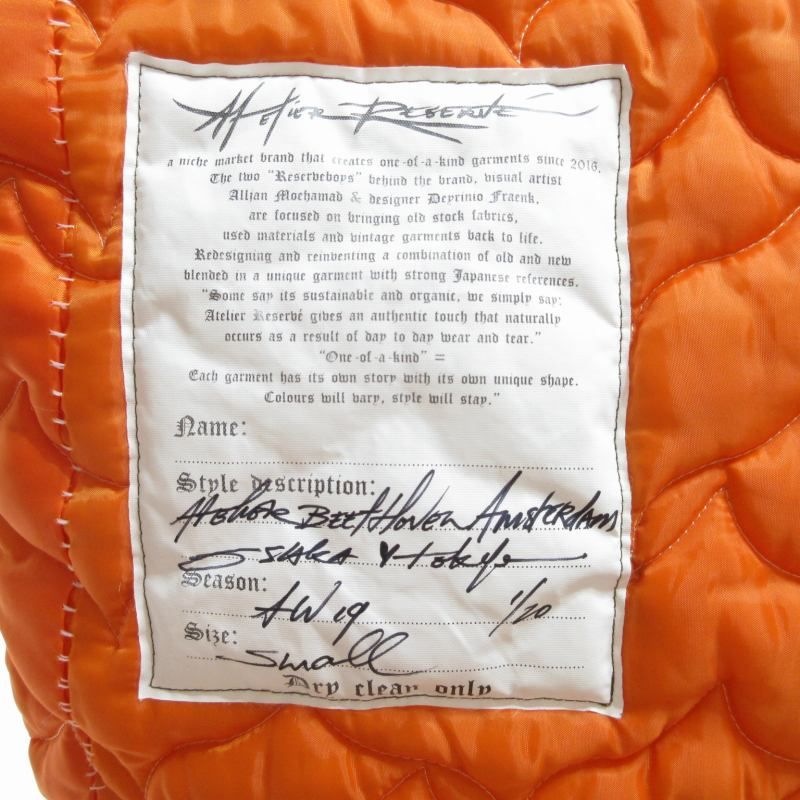 Atelier Reservé
a niche market brand that creates one-of-a-kind garments since 2016.
The two "Reserveboys" behind the brand, visual artist
Alljan Moehamad & designer Deyrinio Fraenk,
are focused on bringing old stock fabrics,
used materials and vintage garments back to life.
Redesigning and reinventing a combination of old and new
blended in a unique garment with strong Japanese references.
"Some say its sustainable and organic, we simply say:
Atelier Reservé gives an authentic touch that naturally
occurs as a result of day to day wear and tear."
"One-of-a-kind" =
Each garment has its own story with its own unique shape.
Colours will vary, style will stay."
Name:
Style description:
Atelier BEETHOVEN Amsterdam
OSAKA Tokyo
Season:
AW 19 1/20
Size:
Small
Dry clean only